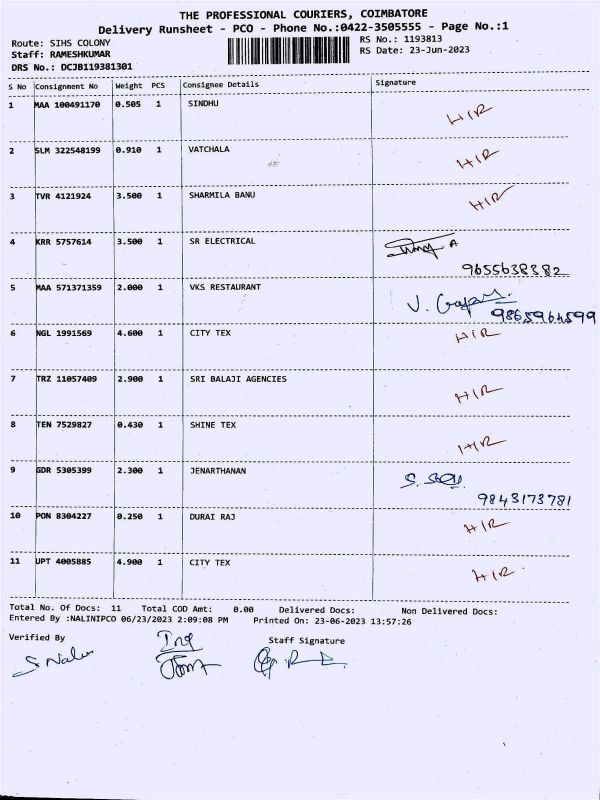 THE PROFESSIONAL COURIERS, COIMBATORE
Delivery Runsheet - PCO - Phone No.:0422-3505555 - Page No.:1
Route: SIHS COLONY RS No.: 1193813
Staff: RAMESHKUMAR RS Date: 23-Jun-2023
DRS No.: DCJB119381301
S No Consignment No Weight PCS Consignee Details Signature
1 MAA 100491170 0.505 1 SINDHU H/R
2 SLM 322548199 0.910 1 VATCHALA H/R
3 TVR 4121924 3.500 1 SHARMILA BANU H/R
4 KRR 5757614 3.500 1 SR ELECTRICAL
9655638382
5 MAA 571371359 2.000 1 VKS RESTAURANT
9865964599
6 NGL 1991569 4.600 1 CITY TEX H/R
7 TRZ 11057409 2.900 1 SRI BALAJI AGENCIES H/R
8 TEN 7529827 0.430 1 SHINE TEX H/R
9 GDR 5305399 2.300 1 JENARTHANAN
9843173781
10 PON 8304227 0.250 1 DURAI RAJ H/R
11 UPT 4005885 4.900 1 CITY TEX H/R
Total No. Of Docs: 11 Total COD Amt: 0.00 Delivered Docs: Non Delivered Docs:
Entered By :NALINIPCO 06/23/2023 2:09:08 PM Printed On: 23-06-2023 13:57:26
Verified By Staff Signature